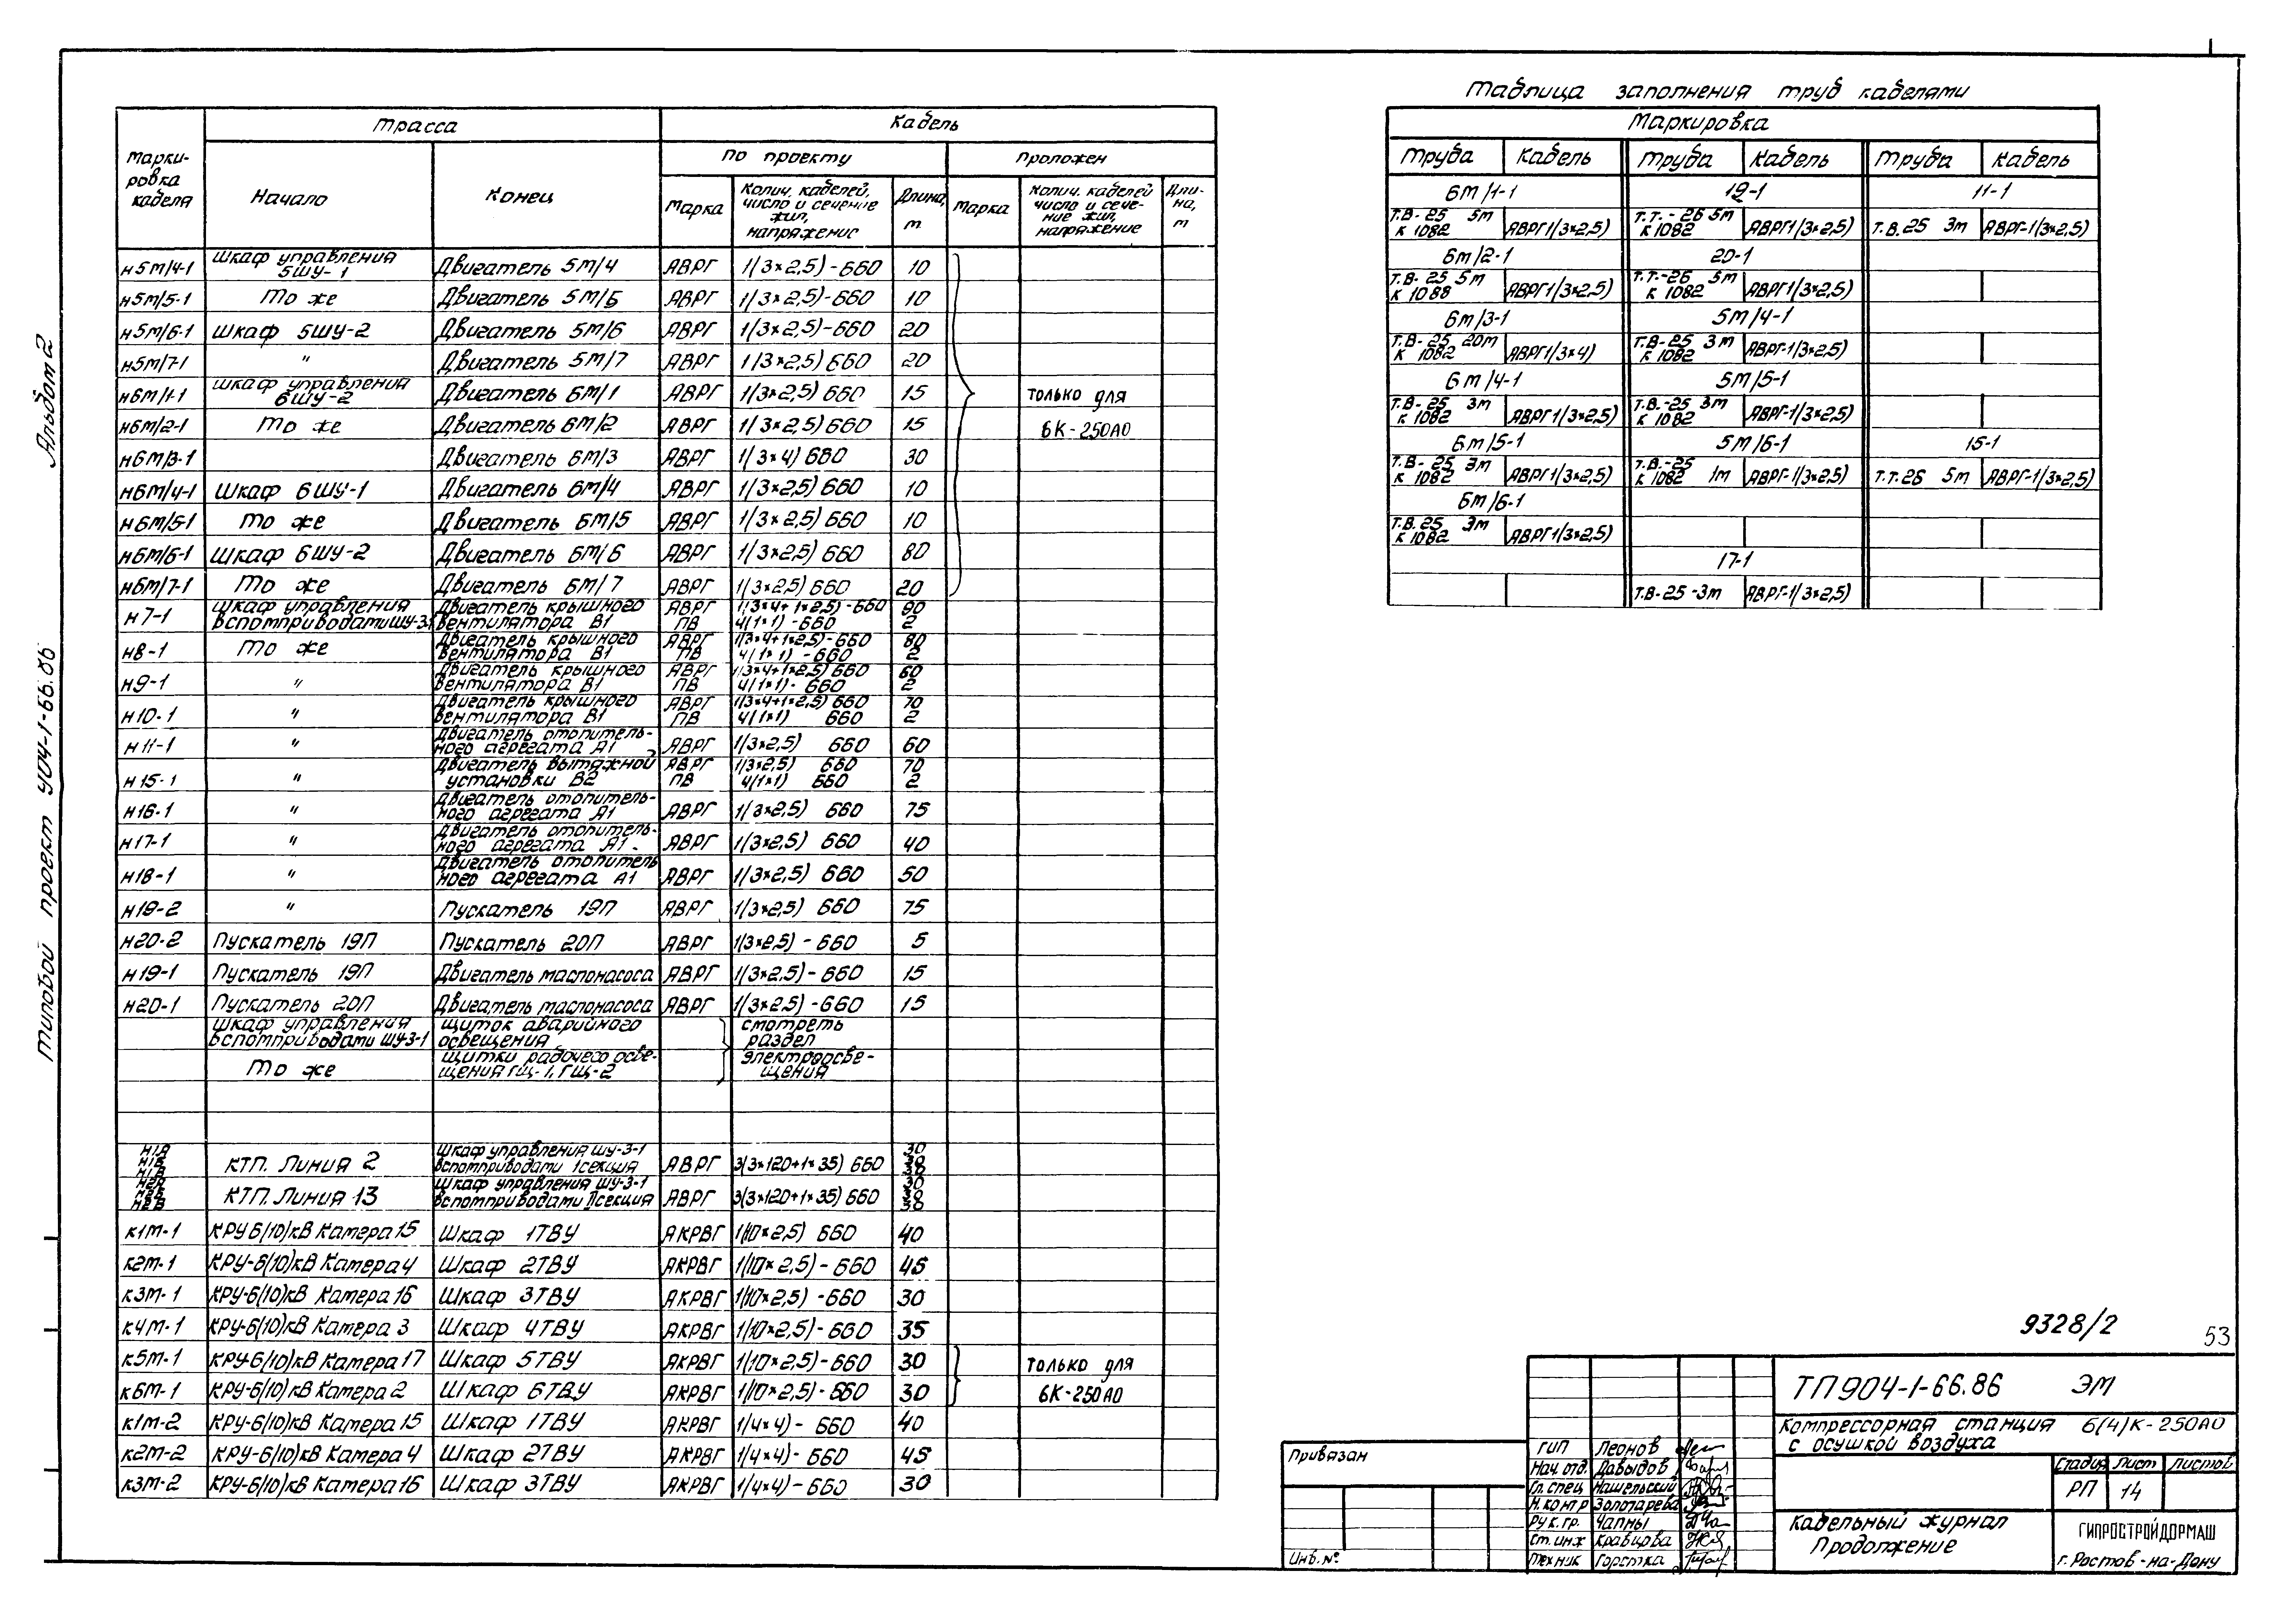 Альбом 2
Типовой проект 904-1-66.86
Марки-
ровка
кабеля
Трасса
Кабель
Начало
Конец
По проекту
Проложен
Марка
Колич. кабелей,
число и сечение
жил,
напряжение
Длина,
м
Марка
Колич. кабелей
число и сече-
ние жил,
напряжение
Дли-
на,
м
н5м/4-1 Шкаф управления 5ШУ-1 Двигатель 5м/4 АВРГ 1(3×2,5)-660 10
н5м/5-1 То же Двигатель 5м/5 АВРГ 1(3×2,5)-660 10
н5м/6-1 Шкаф 5ШУ-2 Двигатель 5м/6 АВРГ 1(3×2,5)-660 20
н5м/7-1 " Двигатель 5м/7 АВРГ 1(3×2,5) 660 20
н6м/1-1 Шкаф управления 6ШУ-2 Двигатель 6м/1 АВРГ 1(3×2,5) 660 15 только для
н6м/2-1 То же Двигатель 6м/2 АВРГ 1(3×2,5) 660 15 6К-250АО
н6м/3-1 Двигатель 6м/3 АВРГ 1(3×4) 660 30
н6м/4-1 Шкаф 6ШУ-1 Двигатель 6м/4 АВРГ 1(3×2,5) 660 10
н6м/5-1 То же Двигатель 6м/5 АВРГ 1(3×2,5) 660 10
н6м/6-1 Шкаф 6ШУ-2 Двигатель 6м/6 АВРГ 1(3×2,5) 660 80
н6м/7-1 То же Двигатель 6м/7 АВРГ 1(3×2,5) 660 20
н7-1 Шкаф управления Двигатель крышного АВРГ 1(3×4+1×2,5)-660 90
вспомприводами ШУ-3-1 вентилятора В1 ПВ 4(1×1)-660 2
н8-1 То же Двигатель крышного АВРГ 1(3×4+1×2,5)-660 80
вентилятора В1 ПВ 4(1×1)-660 2
н9-1 " Двигатель крышного АВРГ 1(3×4+1×2,5) 660 60
вентилятора В1 ПВ 4(1×1)-660 2
н10-1 " Двигатель крышного АВРГ 1(3×4+1×2,5) 660 70
вентилятора В1 ПВ 4(1×1) 660 2
н11-1 " Двигатель отопитель-
ного агрегата А1 АВРГ 1(3×2,5) 660 60
н15-1 " Двигатель вытяжной АВРГ 1(3×2,5) 660 70
установки В2 ПВ 4(1×1) 660 2
н16-1 " Двигатель отопитель-
ного агрегата А1 АВРГ 1(3×2,5) 660 75
н17-1 " Двигатель отопитель-
ного агрегата А1. АВРГ 1(3×2,5) 660 40
н18-1 " Двигатель отопитель
ного агрегата А1 АВРГ 1(3×2,5) 660 50
н19-2 " Пускатель 19П АВРГ 1(3×2,5) 660 75
н20-2 Пускатель 19П Пускатель 20П АВРГ 1(3×2,5)-660 5
н19-1 Пускатель 19П Двигатель маслонасоса АВРГ 1(3×2,5)-660 15
н20-1 Пускатель 20П Двигатель маслонасоса АВРГ 1(3×2,5)-660 15
Шкаф управления Щиток аварийного смотреть
вспомприводами ШУ-3-1 освещения раздел
То же Щитки рабочего осве- электроосве-
щения ГЩ-1, ГЩ-2 щения
Н1А
Н1Б
Н1В
КТП. Линия 2 Шкаф управления ШУ-3-1
вспомприводами I секция АВРГ 3(3×120+1×35) 660 30
30
30
Н2А
Н2Б
Н2В
КТП. Линия 13 Шкаф управления ШУ-3-1
вспомприводами II секция АВРГ 3(3×120+1×35) 660 30
30
30
к1м-1 КРУ-6(10)кВ Камера 15 Шкаф 1ТВУ АКРВГ 1(10×2,5) 660 40
к2м-1 КРУ-6(10)кВ Камера 4 Шкаф 2ТВУ АКРВГ 1(10×2,5)-660 45
к3м-1 КРУ-6(10)кВ Камера 16 Шкаф 3ТВУ АКРВГ 1(10×2,5)-660 30
к4м-1 КРУ-6(10)кВ Камера 3 Шкаф 4ТВУ АКРВГ 1(10×2,5)-660 35
к5м-1 КРУ-6(10)кВ Камера 17 Шкаф 5ТВУ АКРВГ 1(10×2,5)-660 30 только для
к6м-1 КРУ-6(10)кВ Камера 2 Шкаф 6ТВУ АКРВГ 1(10×2,5)-660 30 6К-250АО
к1м-2 КРУ-6(10)кВ Камера 15 Шкаф 1ТВУ АКРВГ 1(4×4)-660 40
к2м-2 КРУ-6(10)кВ Камера 4 Шкаф 2ТВУ АКРВГ 1(4×4)-660 45
к3м-2 КРУ-6(10)кВ Камера 16 Шкаф 3ТВУ АКРВГ 1(4×4)-660 30
Таблица заполнения труб кабелями
Маркировка
Труба Кабель Труба Кабель Труба Кабель
6м/1-1 19-1 11-1
Т.В-25 5м К 1082 АВРГ1(3×2,5) Т.Т.-26 5м К 1082 АВРГ1(3×2,5) Т.В.25 3м АВРГ-1(3×2,5)
6м/2-1 20-1
Т.В-25 5м К 1088 АВРГ1(3×2,5) Т.Т-26 5м К 1082 АВРГ1(3×2,5)
6м/3-1 5м/4-1
Т.В-25 20м К 1082 АВРГ1(3×4) Т.В-25 3м К 1082 АВРГ-1(3×2,5)
6м/4-1 5м/5-1
Т.В-25 3м К 1082 АВРГ1(3×2,5) Т.В.-25 3м К 1082 АВРГ-1(3×2,5)
6м/5-1 5м/6-1 15-1
Т.В-25 3м К 1082 АВРГ1(3×2,5) Т.В.-25 К 1082 1м АВРГ-1(3×2,5) Т.Т.26 5м АВРГ-1(3×2,5)
6м/6-1
Т.В.25 3м К 1082 АВРГ1(3×2,5)
17-1
Т.В-25-3м АВРГ-1(3×2,5)
9328/2
53
ТП 904-1-66.86 ЭМ
Компрессорная станция 6(4)К-250АО
с осушкой воздуха
Стадия Лист Листов
РП 14
Кабельный журнал
Продолжение
ГИПРОСТРОЙДОРМАШ
г. Ростов-на-Дону
Привязан
Инв.№
ГИП Леонов
Нач. отд. Давыдов
Гл. спец. Нашельский
Н. контр Золотарева
Рук. гр. Чапны
Ст. инж Кравцова
Техник Горстка